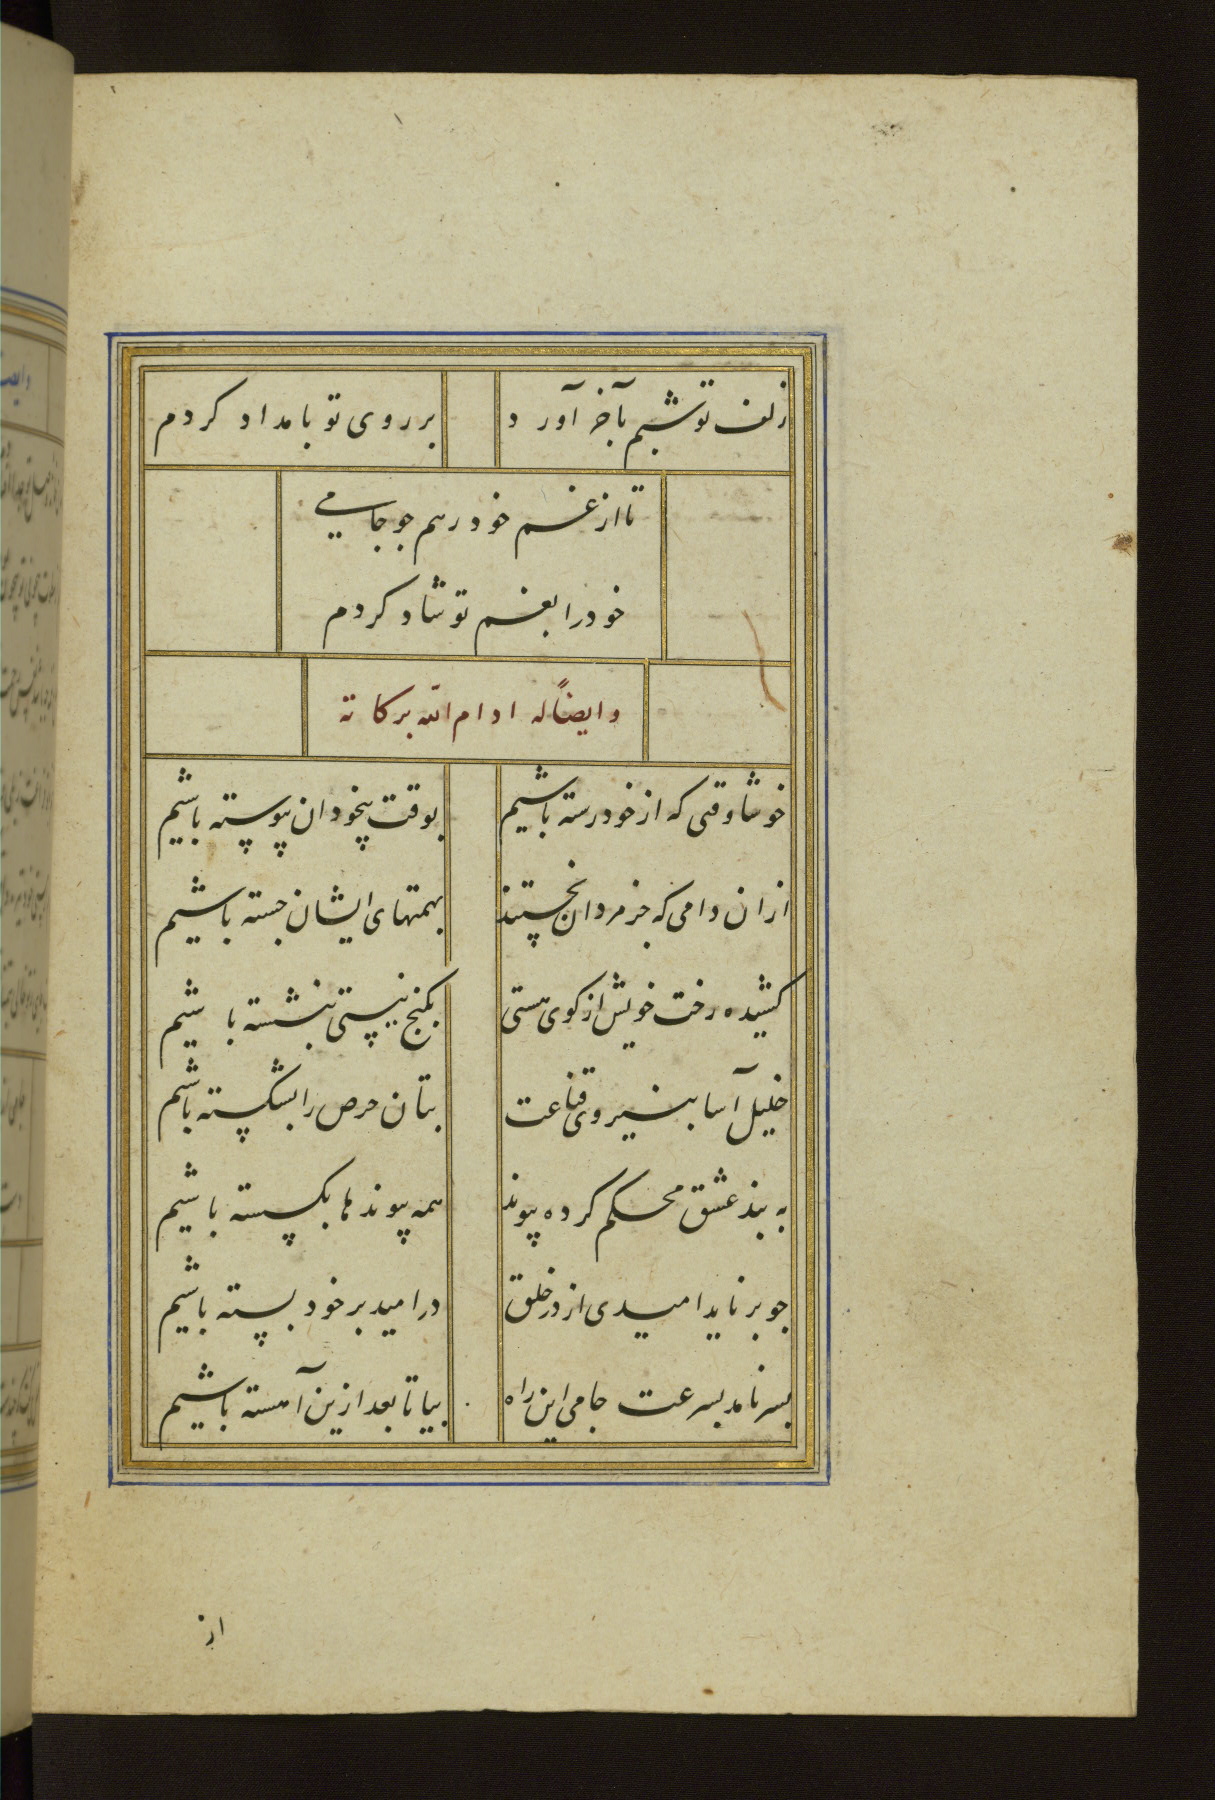 زلف تو شبم بآخر آورد
بر روی تو بامداد کردم
تا از غم خود رهم جو جامی
خود را بغم تو شاد کردم
وایضاً له ادام الله برکاته
خوشا وقتی که از خود رسته باشیم
بوقت بیخودان پیوسته باشیم
ازان دامی که جز مردان نجستند
بهمتهای ایشان جسته باشیم
کشیده رخت خویش از کوی هستی
بکنج نیستی بنشسته باشیم
خلیل آسا بنیروی قناعت
بتان حرص را بشکسته باشیم
به بند عشق محکم کرده پیوند
همه پیوندها بگسسته باشیم
جو بر ناید امیدی از در خلق
در امید بر خود بسته باشیم
بسر نامد بسرعت جامی این راه
بیا تا بعد ازین آهسته باشیم
از